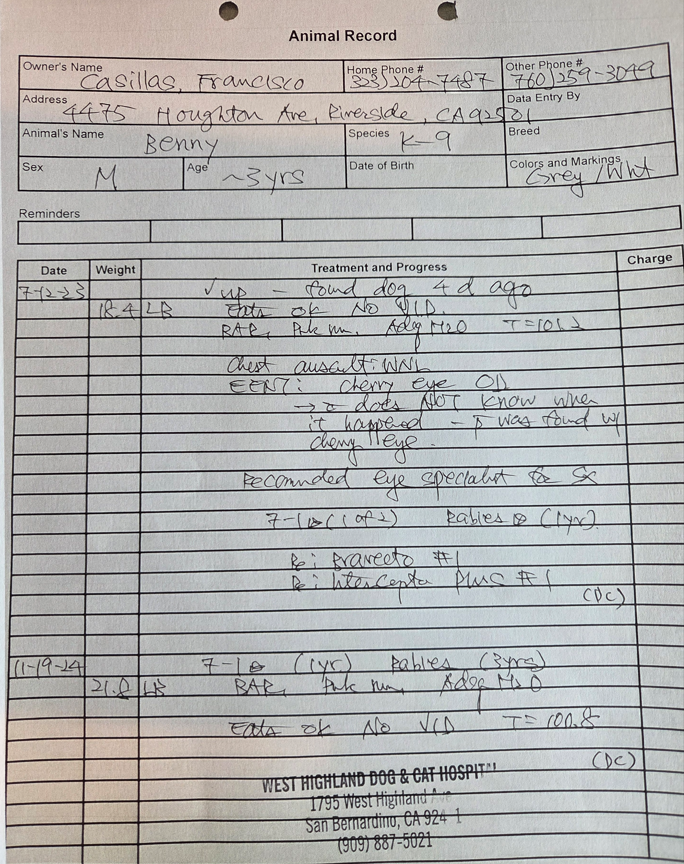 Animal Record
Owner's Name Casillas, Francisco Home Phone # 323) 204-7487 Other Phone # 760) 259-3049
Address 4475 Houghton Ave, Riverside, CA 92501 Data Entry By
Animal's Name Benny Species K-9 Breed
Sex M Age ~3yrs Date of Birth Colors and Markings Grey / Wht
Reminders
Date Weight Treatment and Progress Charge
7-12-23 √ up - found dog 4 d ago
18.4 LB Eats ok No V/D.
BAR, Pnk mm. Adeq H2O T=101.2
Chest auscult: WNL
EENT: cherry eye OD
→ does NOT know when
it happened - was found w/
cherry eye.
Recommded eye specialist for Sx
7-1 (1 of 2) Rabies (1yr)
Bravecto #1
Interceptor Plus #1
(DC)
11-19-24 7-1 (1yr) Rabies (3yrs)
21.8 LB BAR, Pnk mm, Adeq H2O
Eats ok No V/D T=100.8
(DC)
WEST HIGHLAND DOG & CAT HOSPITAL
1795 West Highland Ave
San Bernardino, CA
(909) 887-5021